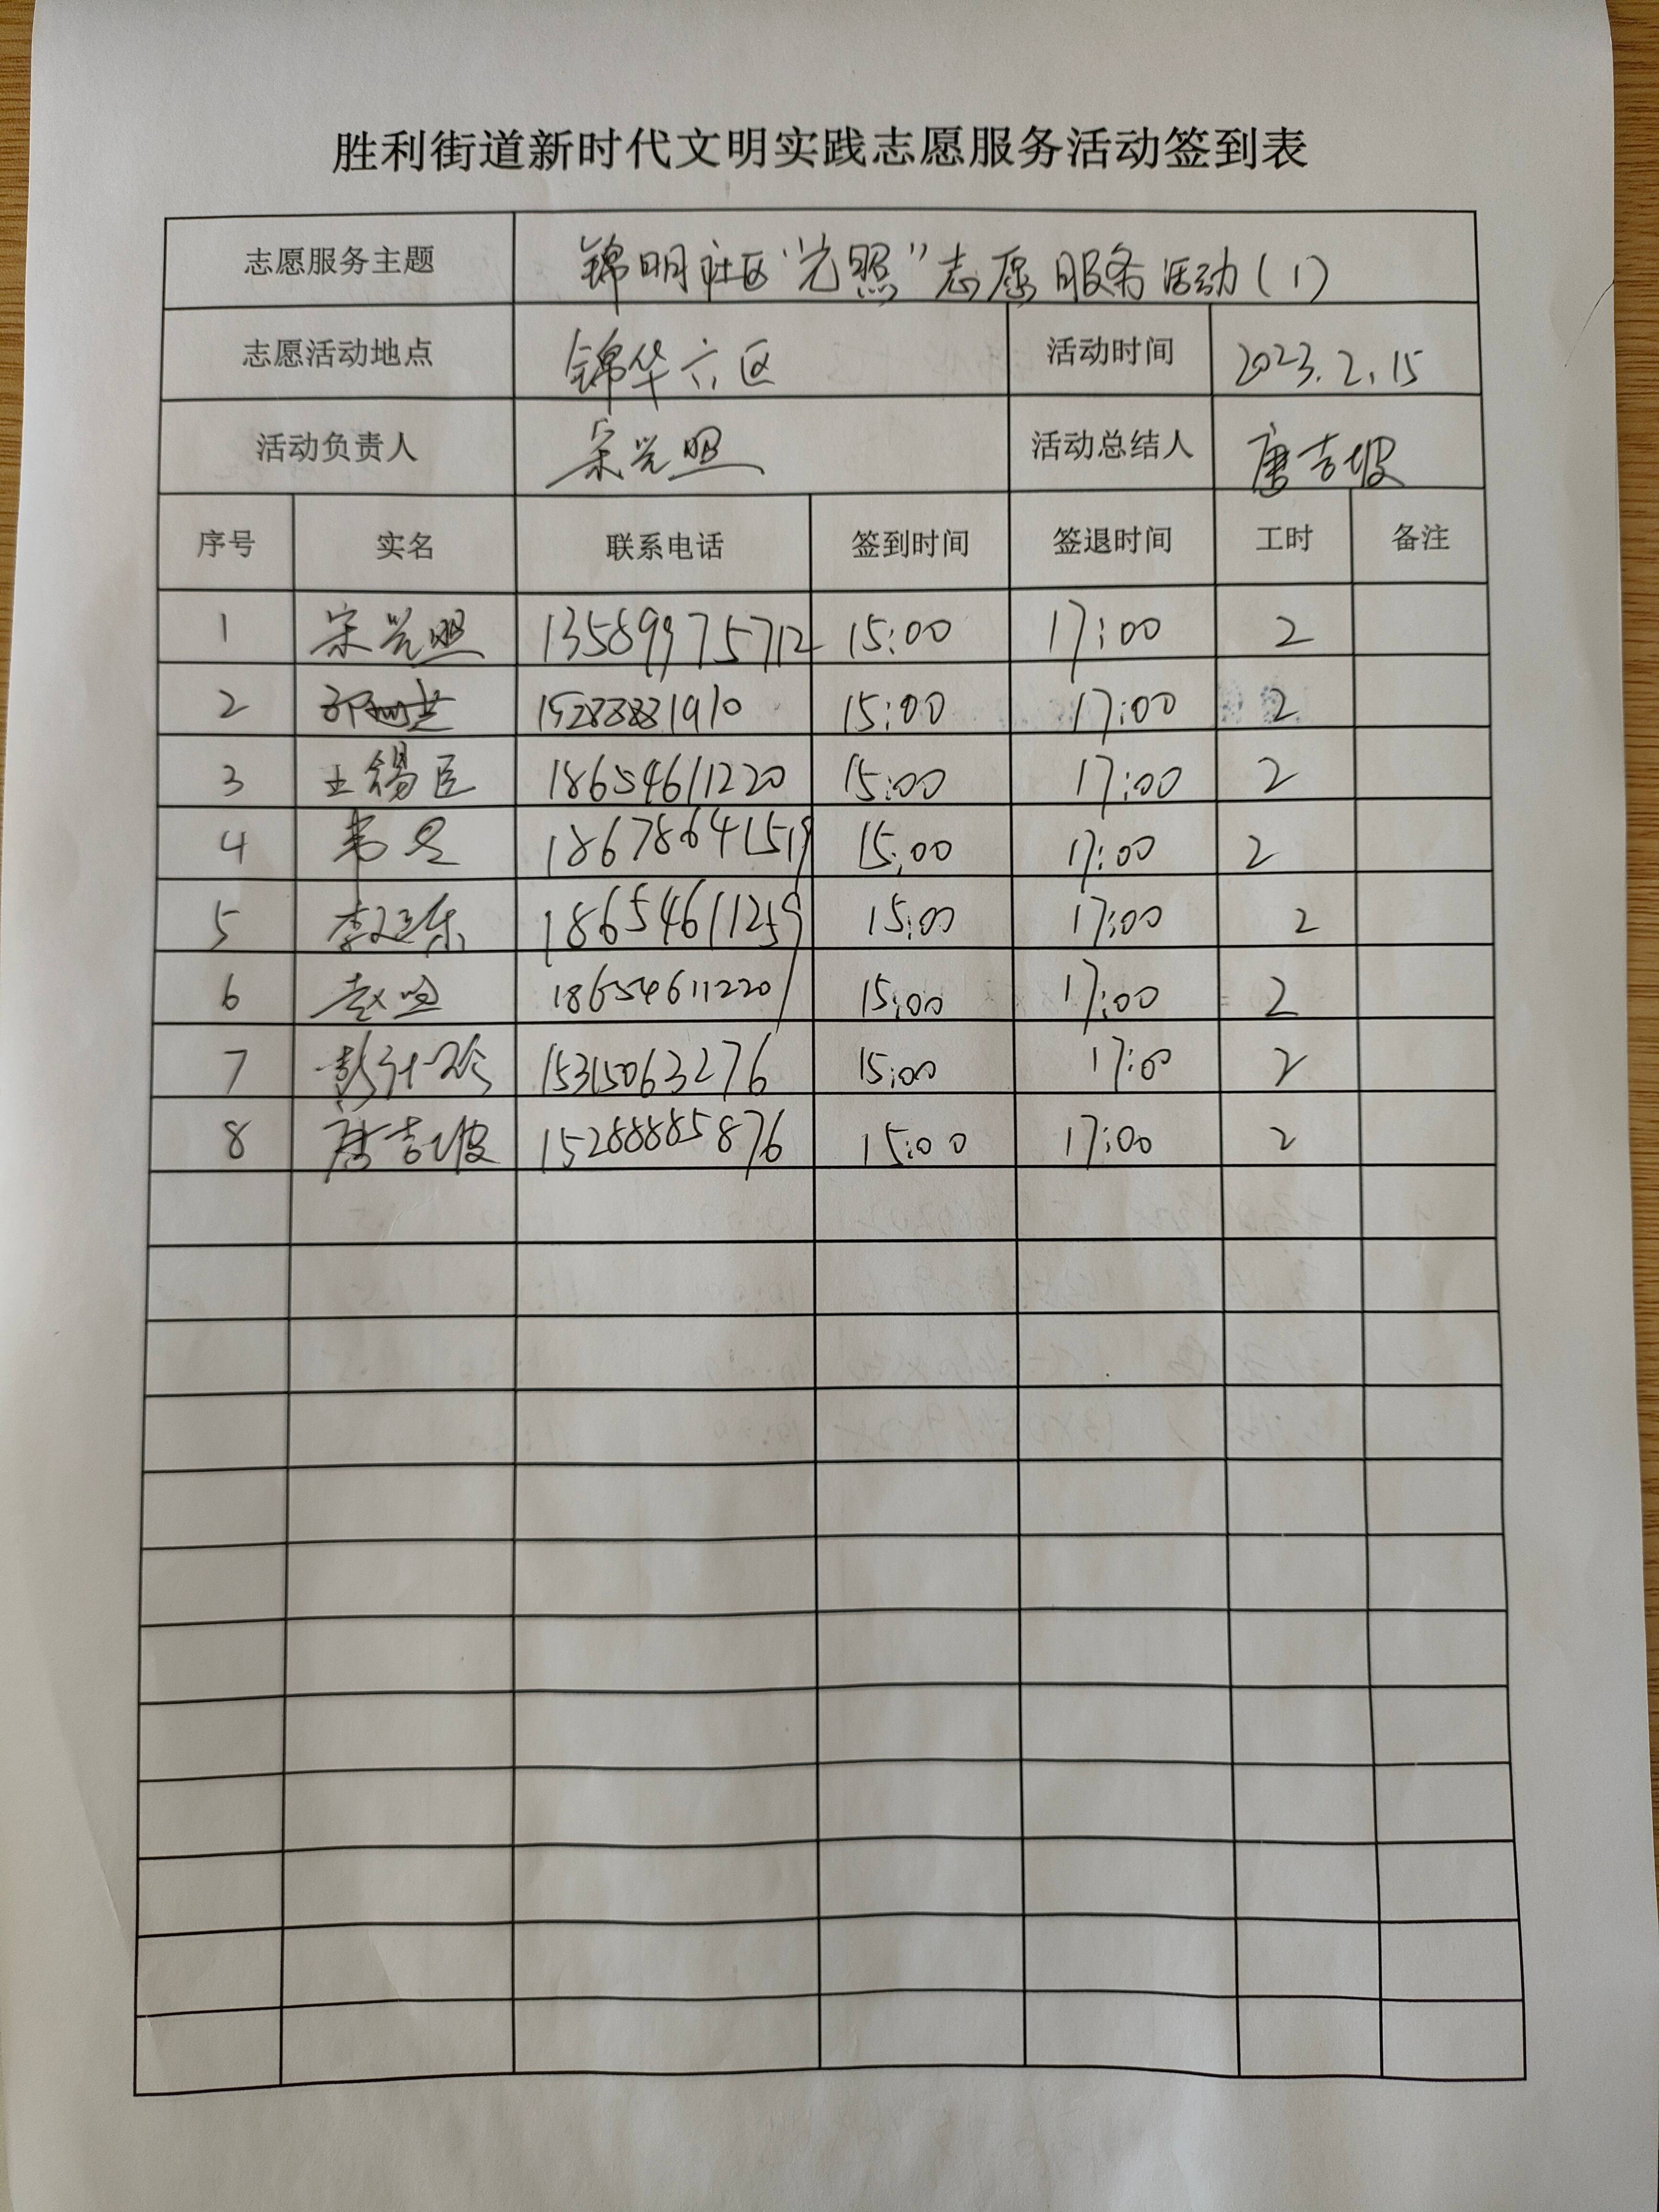 胜利街道新时代文明实践志愿服务活动签到表
志愿服务主题 锦明社区“光照”志愿服务活动(1)
志愿活动地点 锦华六区 活动时间 2023.2.15
活动负责人 宋光照 活动总结人 唐吉坡
序号 实名 联系电话 签到时间 签退时间 工时 备注
1 宋光照 13589975712 15:00 17:00 2
2 15288881910 15:00 17:00 2
3 王锡臣 18654611220 15:00 17:00 2
4 18678641519 15:00 17:00 2
5 18654611259 15:00 17:00 2
6 18654611220 15:00 17:00 2
7 15315063276 15:00 17:00 2
8 唐吉坡 15288885876 15:00 17:00 2